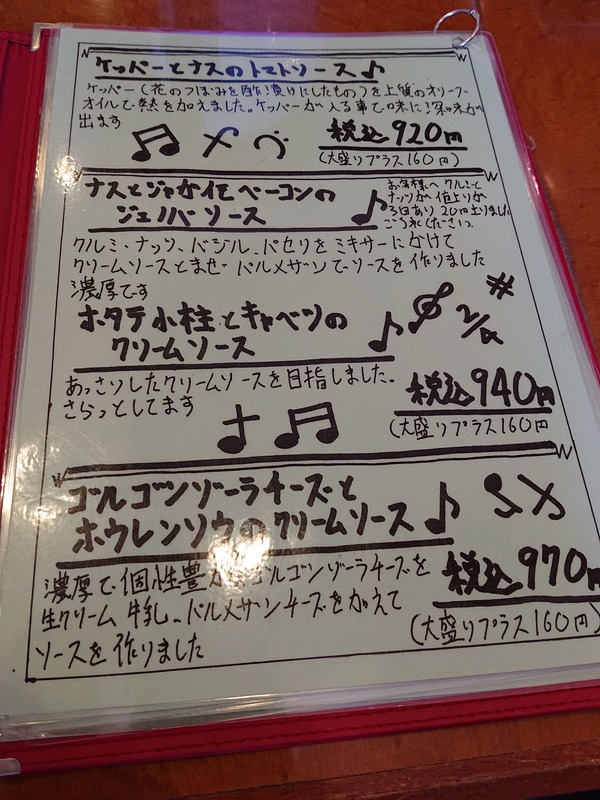 ケッパーとナスのトマトソース♪
ケッパー(花のつぼみを酢漬けにしたもの)を上質のオリーブ
オイルで熱を加えました。ケッパーが入る事で味に深味が
出ます
税込920円
(大盛りプラス160円)
ナスとジャガイモベーコンの
ジェノバソース♪
お客様へ クルミと
ナッツが値上りが
20円上りました
ご了承ください。
クルミ、ナッツ、バジル、パセリをミキサーにかけて
クリームソースとまぜ、パルメザンでソースを作りました
濃厚です
ホタテ小柱とキャベツの
クリームソース♪
2/4
#
あっさりしたクリームソースを目指しました。
さらっとしてます
税込940円
(大盛りプラス160円
ゴルゴンゾーラチーズと
ホウレンソウのクリームソース♪
濃厚で個性豊かなゴルゴンゾーラチーズを
生クリーム、牛乳、パルメザンチーズを加えて
ソースを作りました
税込970円
(大盛りプラス160円)